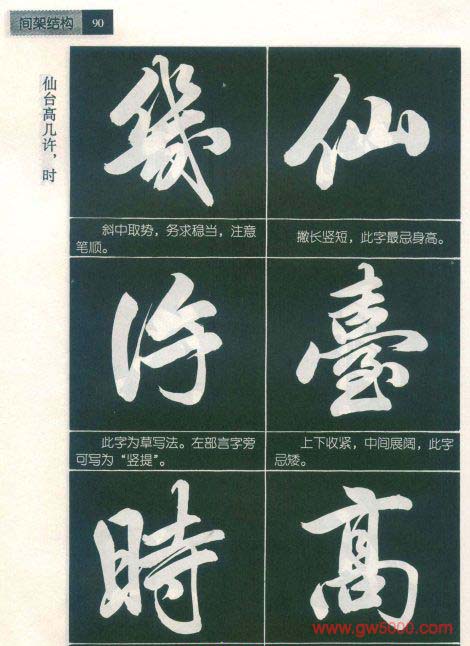 间架结构 90
仙台高几许，时
仙
撇长竖短，此字最忌身高。
臺
上下收紧，中间展阔，此字
忌矮。
高
幾
斜中取势，务求稳当，注意
笔顺。
许
此字为草写法。左部言字旁
可写为“竖提”。
時
www.gw5000.com